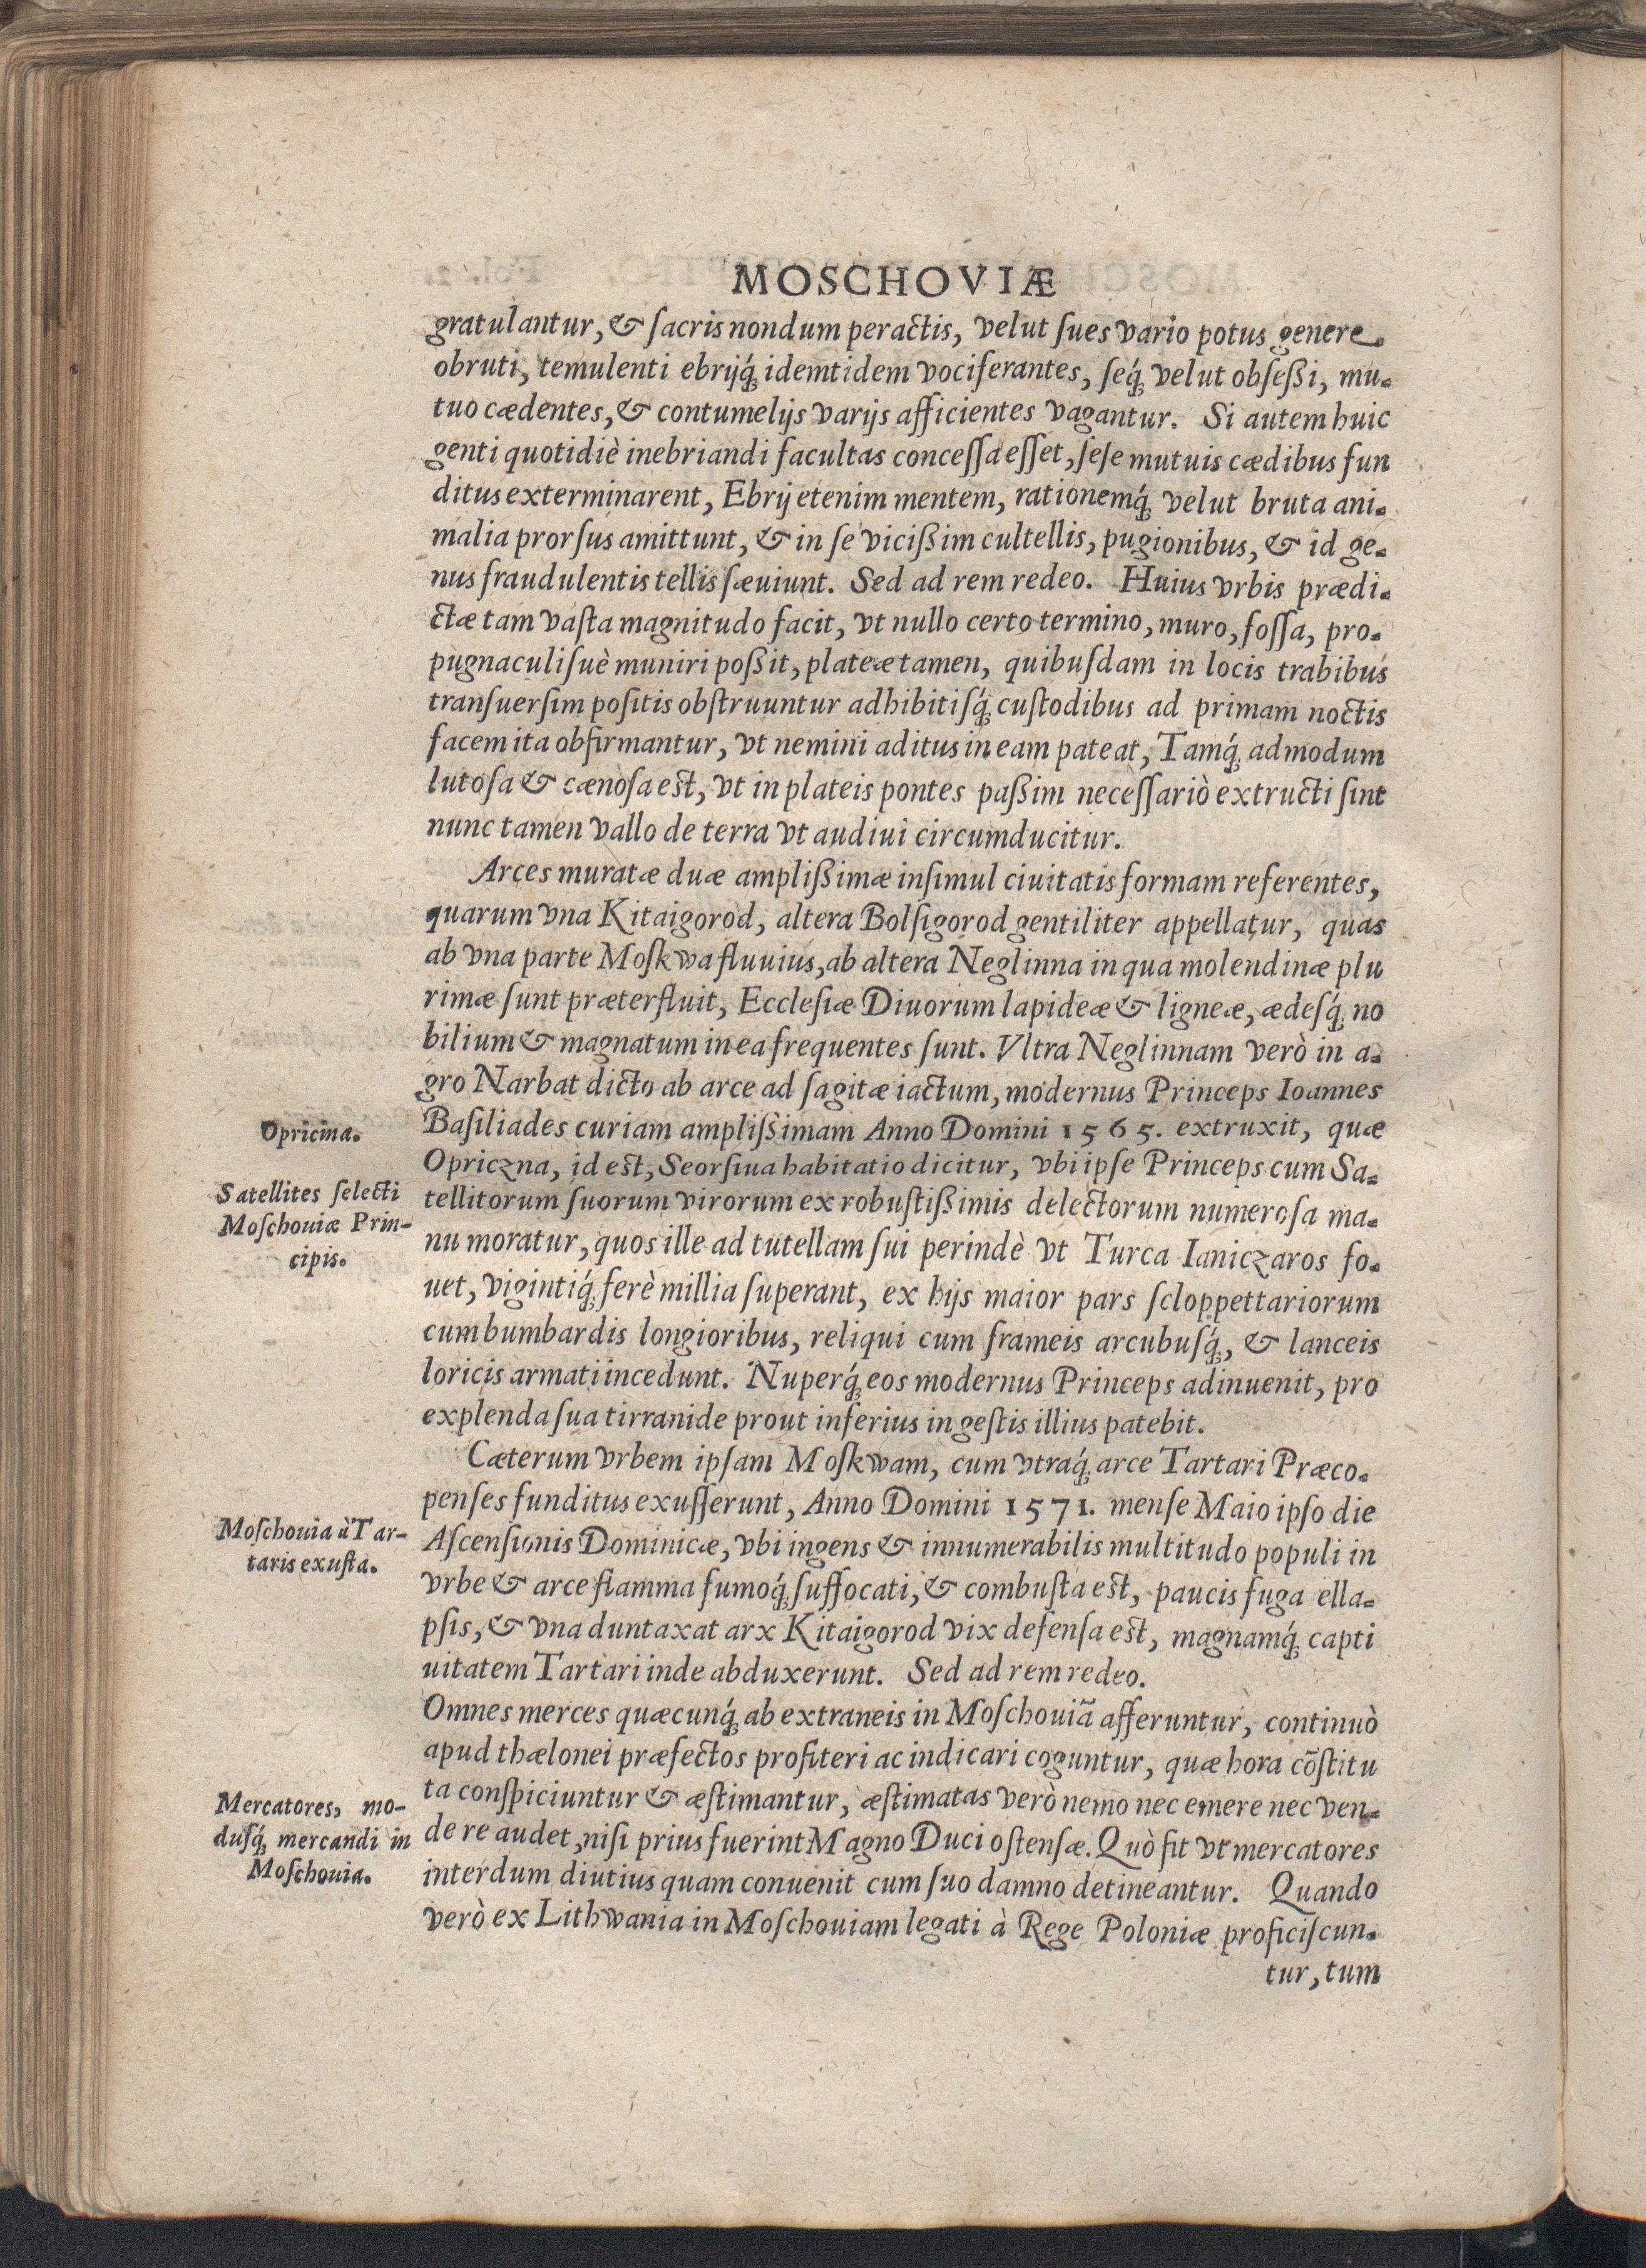 MOSCHOVIÆ
gratulantur, & ſacris nondum peractis, velut ſues vario potus genere
obruti, temulenti ebrijq́; idemtidem vociferantes, ſeq́; velut obſeßi, mu-
tuo cædentes, & contumelijs varijs afficientes vagantur. Si autem huic
genti quotidiè inebriandi facultas conceſſa eſſet, ſeſe mutuis cædibus fun
ditus exterminarent, Ebrij etenim mentem, rationemq́; velut bruta ani-
malia prorſus amittunt, & in ſe vicißim cultellis, pugionibus, & id ge-
nus fraudulentis tellis ſæuiunt. Sed ad rem redeo. Huius vrbis prædi-
ctæ tam vaſta magnitudo facit, vt nullo certo termino, muro, foſſa, pro-
pugnaculiſuè muniri poßit, plateæ tamen, quibuſdam in locis trabibus
tranſuerſim poſitis obſtruuntur adhibitiſq́; cuſtodibus ad primam noctis
facem ita obfirmantur, vt nemini aditus in eam pateat, Tamq́; admodum
lutoſa & cænoſa eſt, vt in plateis pontes paßim neceſſariò extructi ſint
nunc tamen vallo de terra vt audiui circumducitur.
Arces muratæ duæ amplißimæ inſimul ciuitatis formam referentes,
quarum vna Kitaigorod, altera Bolſigorod gentiliter appellatur, quas
ab vna parte Moſkwa fluuius, ab altera Neglinna in qua molendinæ plu
rimæ ſunt præterfluit, Eccleſiæ Diuorum lapideæ & ligneæ, ædeſq́; no
bilium & magnatum in ea frequentes ſunt. Vltra Neglinnam verò in a-
gro Narbat dicto ab arce ad ſagitæ iactum, modernus Princeps Ioannes
Opricina.
Baſiliades curiam amplißimam Anno Domini 1565. extruxit, quæ
Opriczna, id eſt, Seorſiua habitatio dicitur, vbi ipſe Princeps cum Sa-
Satellites ſelecti
Moſchouiæ Prin-
cipis.
tellitorum ſuorum virorum ex robuſtißimis delectorum numeroſa ma-
nu moratur, quos ille ad tutellam ſui perindè vt Turca Ianiczaros fo-
uet, vigintiq́; ferè millia ſuperant, ex hijs maior pars ſcloppettariorum
cum bumbardis longioribus, reliqui cum frameis arcubuſq́;, & lanceis
loricis armati incedunt. Nuperq́; eos modernus Princeps adinuenit, pro
explenda ſua tirranide prout inferius in geſtis illius patebit.
Cæterum vrbem ipſam Moſkwam, cum vtraq́; arce Tartari Præco-
penſes funditus exuſſerunt, Anno Domini 1571. menſe Maio ipſo die
Moſchouia à Tar-
taris exuſta.
Aſcenſionis Dominicæ, vbi ingens & innumerabilis multitudo populi in
vrbe & arce flamma fumoq́; ſuffocati, & combuſta eſt, paucis fuga ella-
pſis, & vna duntaxat arx Kitaigorod vix defenſa eſt, magnamq́; capti
uitatem Tartari inde abduxerunt. Sed ad rem redeo.
Omnes merces quæcunq́; ab extraneis in Moſchouiã afferuntur, continuò
apud thælonei præfectos profiteri ac indicari coguntur, quæ hora cõſtitu
Mercatores, mo-
duſq́; mercandi in
Moſchouia.
ta conſpiciuntur & æſtimantur, æſtimatas verò nemo nec emere nec ven-
dere audet, niſi prius fuerint Magno Duci oſtenſæ. Quò fit vt mercatores
interdum diutius quam conuenit cum ſuo damno detineantur. Quando
verò ex Lithwania in Moſchouiam legati à Rege Poloniæ proficiſcun-
tur, tum